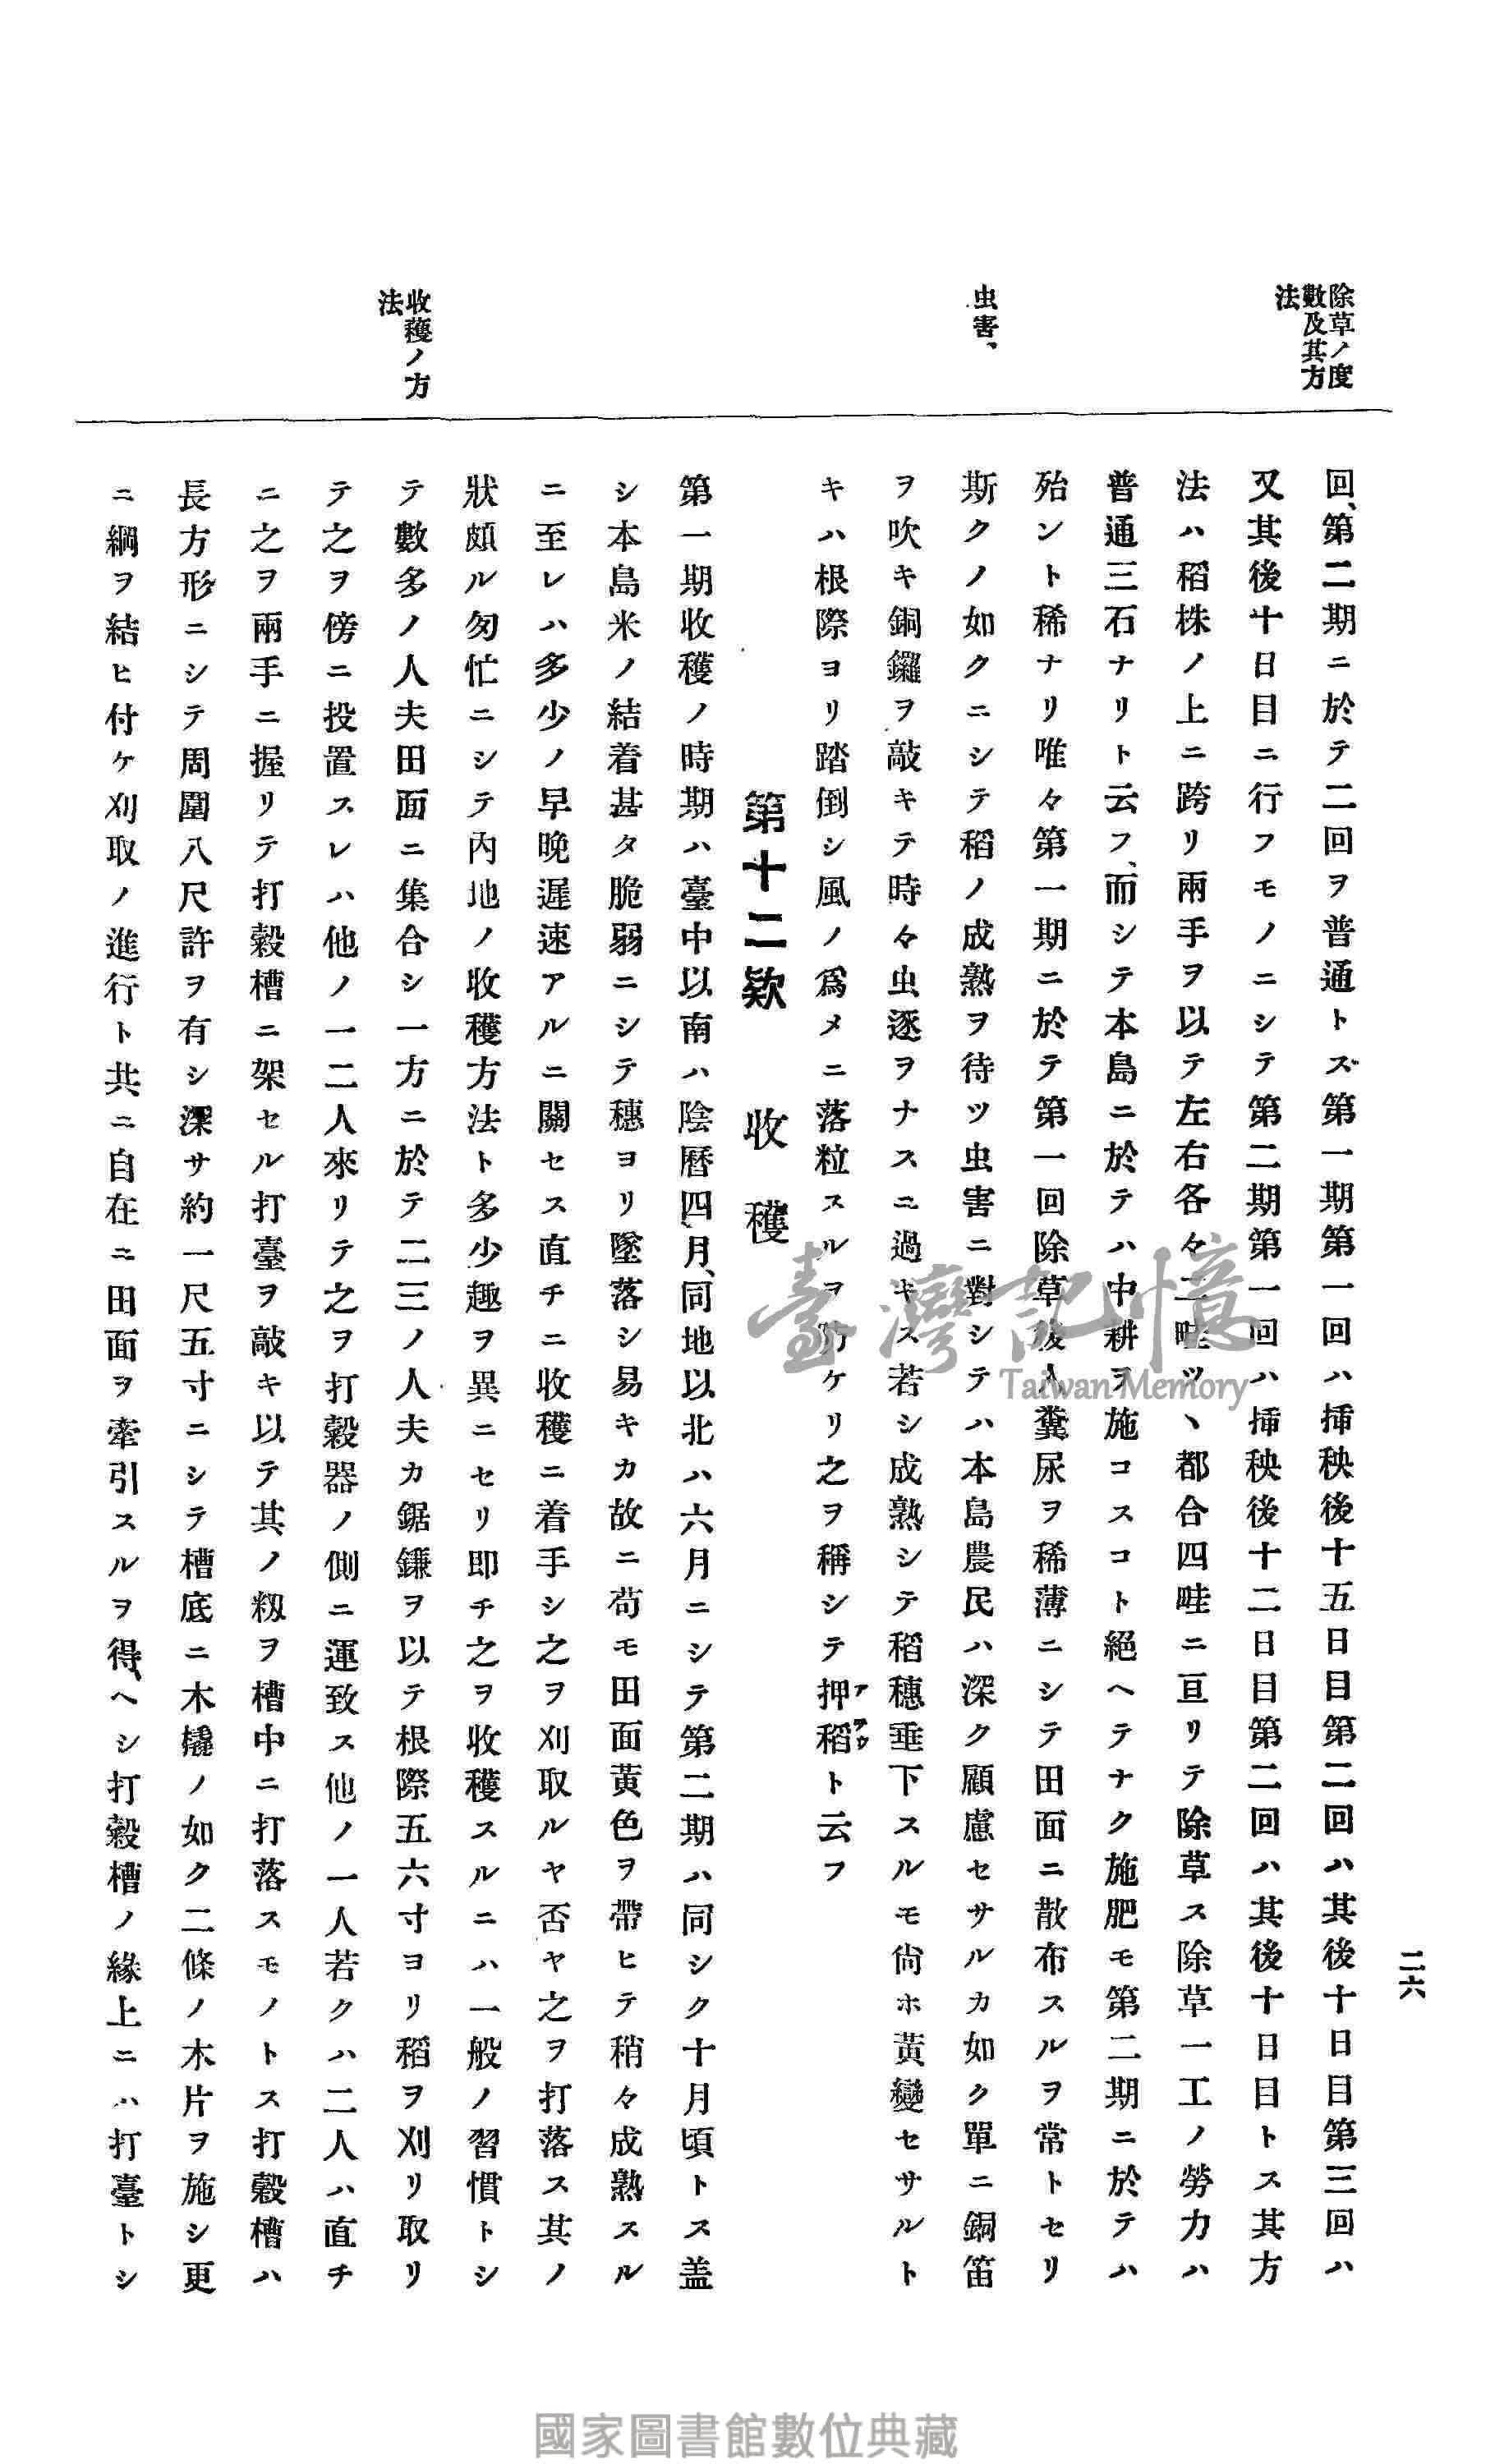 二六
除草ノ度
數及其方
法
虫害、
收穫ノ方
法
回、第二期ニ於テ二回ヲ普通トス第一期第一回ハ挿秧後十五日目第二回ハ其後十日目第三回ハ
又其後十日目ニ行フモノニシテ第二期第一回ハ挿秧後十二日目第二回ハ其後十日目トス其方
法ハ稻株ノ上ニ跨リ兩手ヲ以テ左右各々二畦ツヽ都合四畦ニ亘リテ除草ス除草一工ノ勞力ハ
普通三石ナリト云フ、而シテ本島ニ於テハ中耕ヲ施コスコト絕ヘテナク施肥モ第二期ニ於テハ
殆ント稀ナリ唯々第一期ニ於テ第一回除草後人糞尿ヲ稀薄ニシテ田面ニ散布スルヲ常トセリ
斯クノ如クニシテ稻ノ成熟ヲ待ツ虫害ニ對シテハ本島農民ハ深ク顧慮セサルカ如ク單ニ銅笛
ヲ吹キ銅鑼ヲ敲キテ時々虫逐ヲナスニ過キス若シ成熟シテ稻穗垂下スルモ尙ホ黃變セサルト
キハ根際ヨリ踏倒シ風ノ爲メニ落粒スルヲ防ケリ之ヲ稱シテ押稻ト云フ
第十二欵 收穫
第一期收穫ノ時期ハ臺中以南ハ陰曆四月、同地以北ハ六月ニシテ第二期ハ同シク十月頃トス盖
シ本島米ノ結着甚タ脆弱ニシテ穗ヨリ墜落シ易キカ故ニ苟モ田面黃色ヲ帶ヒテ稍々成熟スル
ニ至レハ多少ノ早晚遲速アルニ關セス直チニ收穫ニ着手シ之ヲ刈取ルヤ否ヤ之ヲ打落ス其ノ
狀頗ル匆忙ニシテ內地ノ收穫方法ト多少趣ヲ異ニセリ卽チ之ヲ收穫スルニハ一般ノ習慣トシ
テ數多ノ人夫田面ニ集合シ一方ニ於テ二三ノ人夫カ鋸鎌ヲ以テ根際五六寸ヨリ稻ヲ刈リ取リ
テ之ヲ傍ニ投置スレハ他ノ一二人來リテ之ヲ打穀器ノ側ニ運致ス他ノ一人若クハ二人ハ直チ
ニ之ヲ兩手ニ握リテ打穀槽ニ架セル打臺ヲ敲キ以テ其ノ籾ヲ槽中ニ打落スモノトス打穀槽ハ
長方形ニシテ周圍八尺許ヲ有シ深サ約一尺五寸ニシテ槽底ニ木橇ノ如ク二條ノ木片ヲ施シ更
ニ綱ヲ結ヒ付ケ刈取ノ進行ト共ニ自在ニ田面ヲ牽引スルヲ得、ヘシ打穀槽ノ緣上ニハ打臺トシ
臺灣記憶
Taiwan Memory
國家圖書館數位典藏